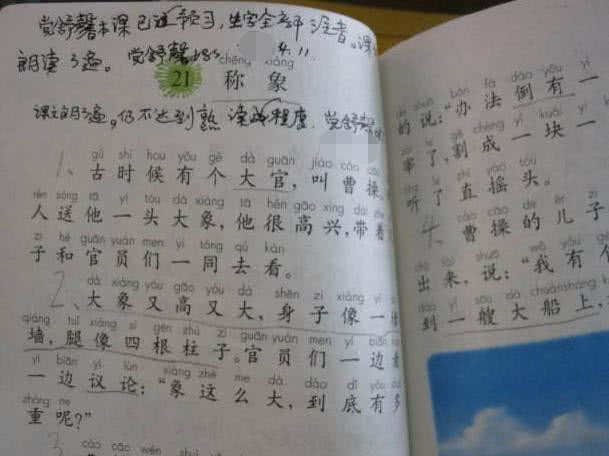 党舒馨本课已进预习，生字全部注音。课
朗读3遍。党舒馨 4.11.
chēng xiàng
21 称 象
课文朗3遍，仍不达到熟读的程度.党舒
1、gǔ shí hou yǒu gè dà guān jiào cáo cāo
古时候有个大官，叫曹操
rén sòng tā yì tóu dà xiàng tā hěn gāo xìng dài zhe
人送他一头大象，他很高兴，带着
zi hé guān yuán men yì tóng qù kàn
子和官员们一同去看。
2、dà xiàng yòu gāo yòu dà shēn zi xiàng yì
大象又高又大，身子像一
qiáng tuǐ xiàng sì gēn zhù zi guān yuán men yì biān
墙，腿像四根柱子。官员们一边
yì biān yì lùn xiàng zhè me dà dào dǐ yǒu duō
一边议论：“象这么大，到底有多
zhòng ne
重呢？”
3
cáo cāo wèn shuí
的说：“办法倒有一
宰了，割成一块一
听了直摇头。
4、cáo cāo de ér
曹操的儿子
chū lái shuō wǒ yǒu gè
出来，说：“我有个
dào yì sōu dà chuán shàng
到一艘大船上，